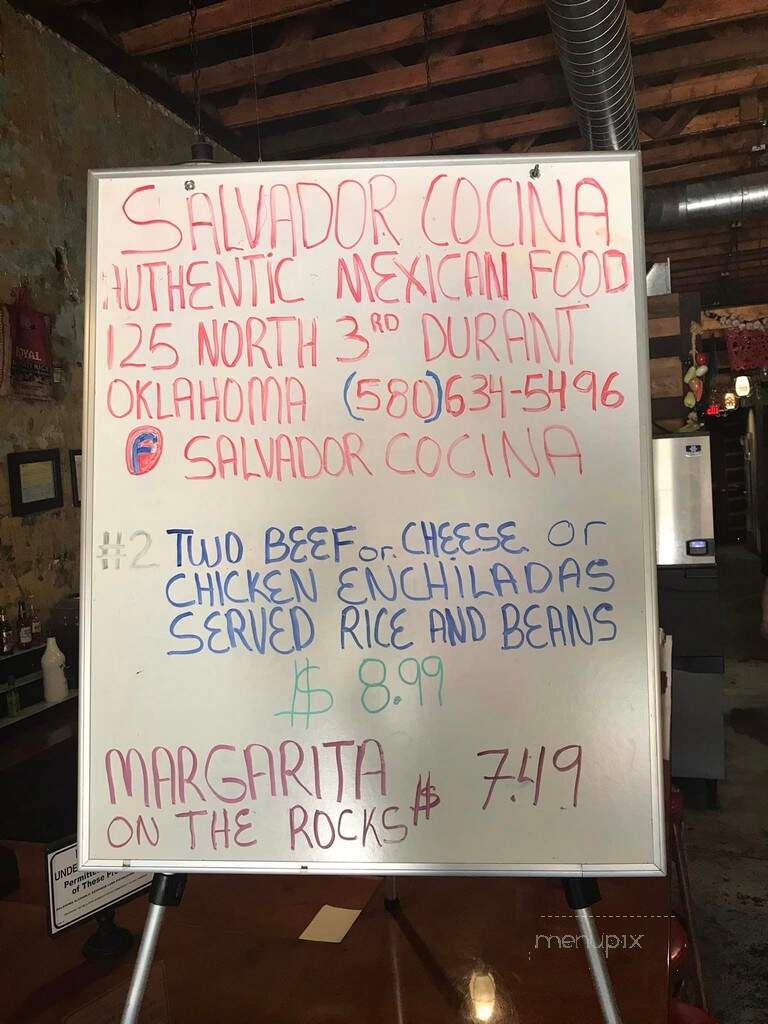 SALVADOR COCINA
AUTHENTIC MEXICAN FOOD
125 NORTH 3RD DURANT
OKLAHOMA (580)634-5496
F SALVADOR COCINA
#2 TWO BEEF or CHEESE or
CHICKEN ENCHILADAS
SERVED RICE AND BEANS
$ 8.99
MARGARITA $ 7.49
ON THE ROCKS
UNDE
Permitt
of These Pr
menupix